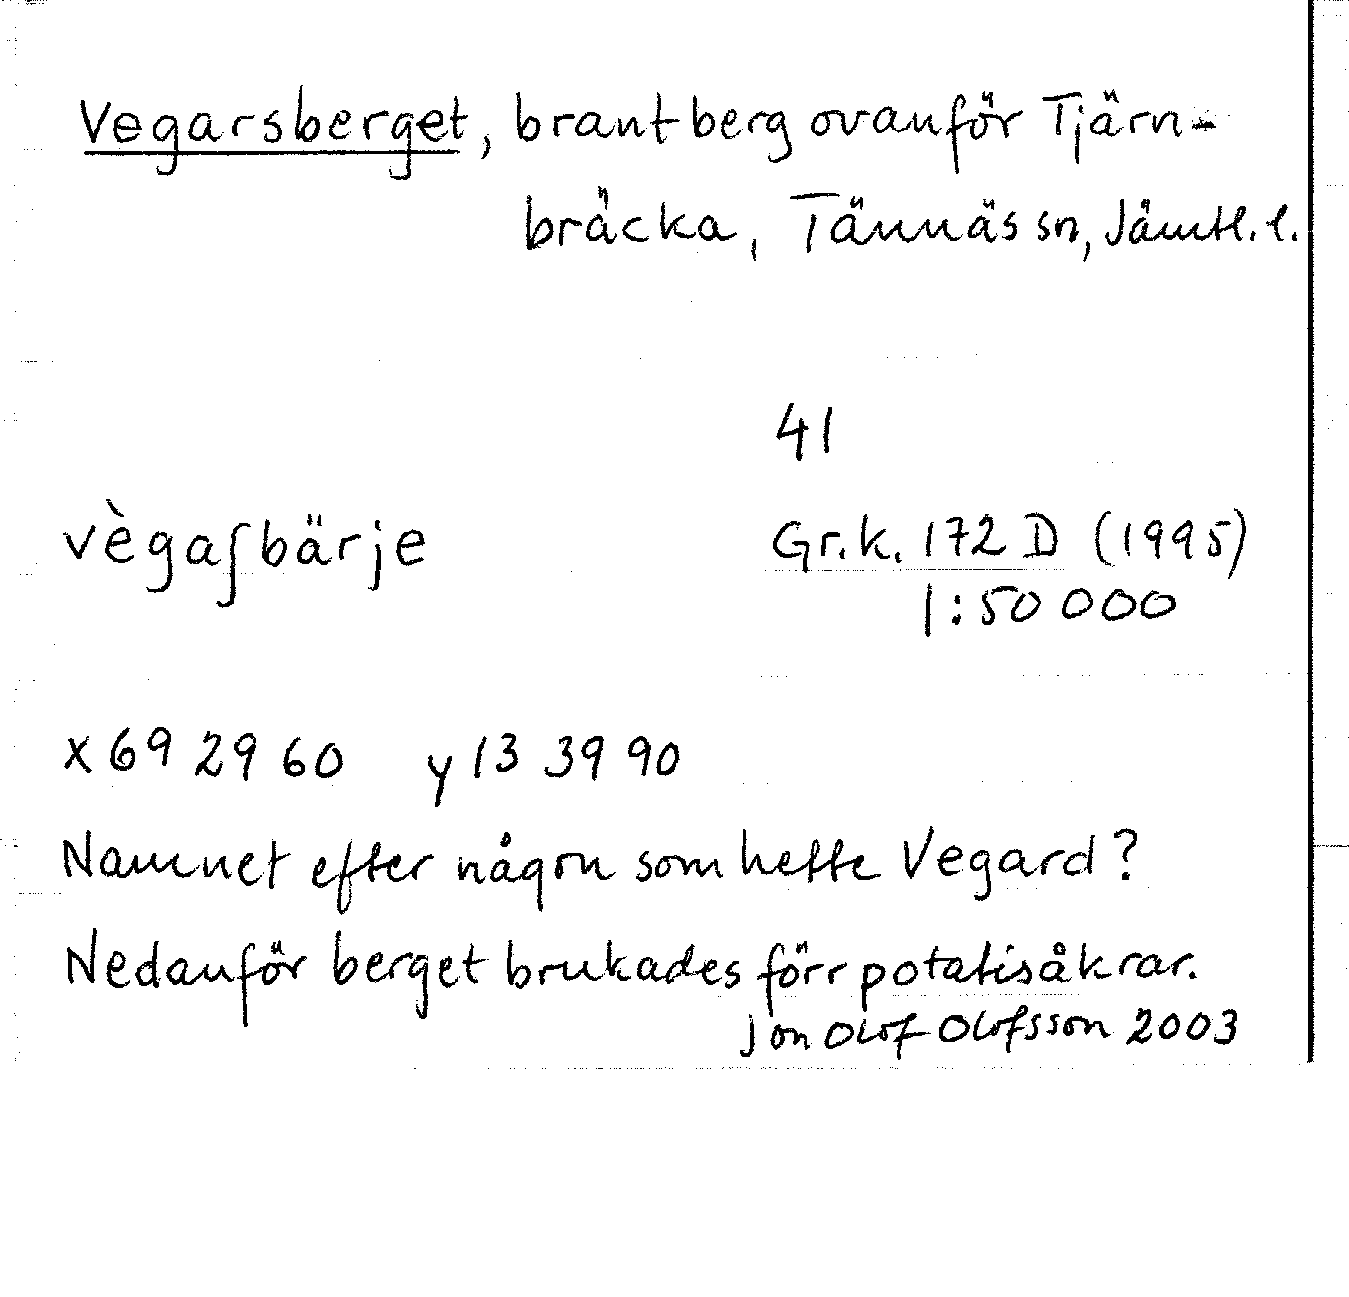 Vegarsberget, brant berg ovanför Tjärn-
bräcka, Tännäs sn, Jämtl. l.
41
vègaʃbärje
Gr.k. 172 D (1995)
1:50 000
x 69 29 60 y 13 39 90
Namnet efter någon som hette Vegard?
Nedanför berget brukades förr potatisåkrar.
Jon Olof Olofsson 2003